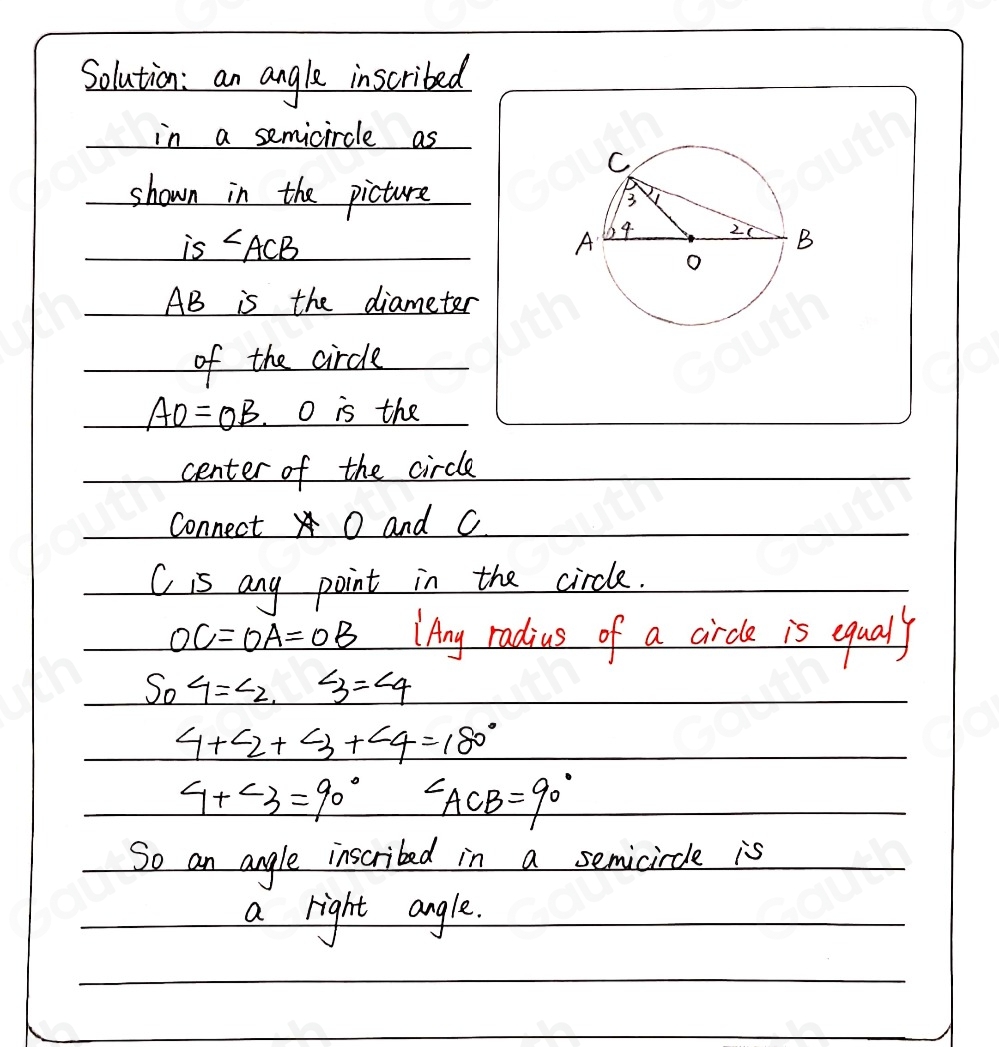 Solution: an angle inscribed
in a semicircle as
shown in the picture
is ∠ACB
AB is the diameter
of the circle
AO=OB. O is the
center of the circle
Connect O and C.
C is any point in the circle.
OC=OA=OB {Any radius of a circle is equal}
So ∠1=∠2. ∠3=∠4
∠1+∠2+∠3+∠4=180°
∠1+∠3=90° ∠ACB=90°
So an angle inscribed in a semicircle is
a right angle.
C
3 1
A 4 2 B
O
Gauth